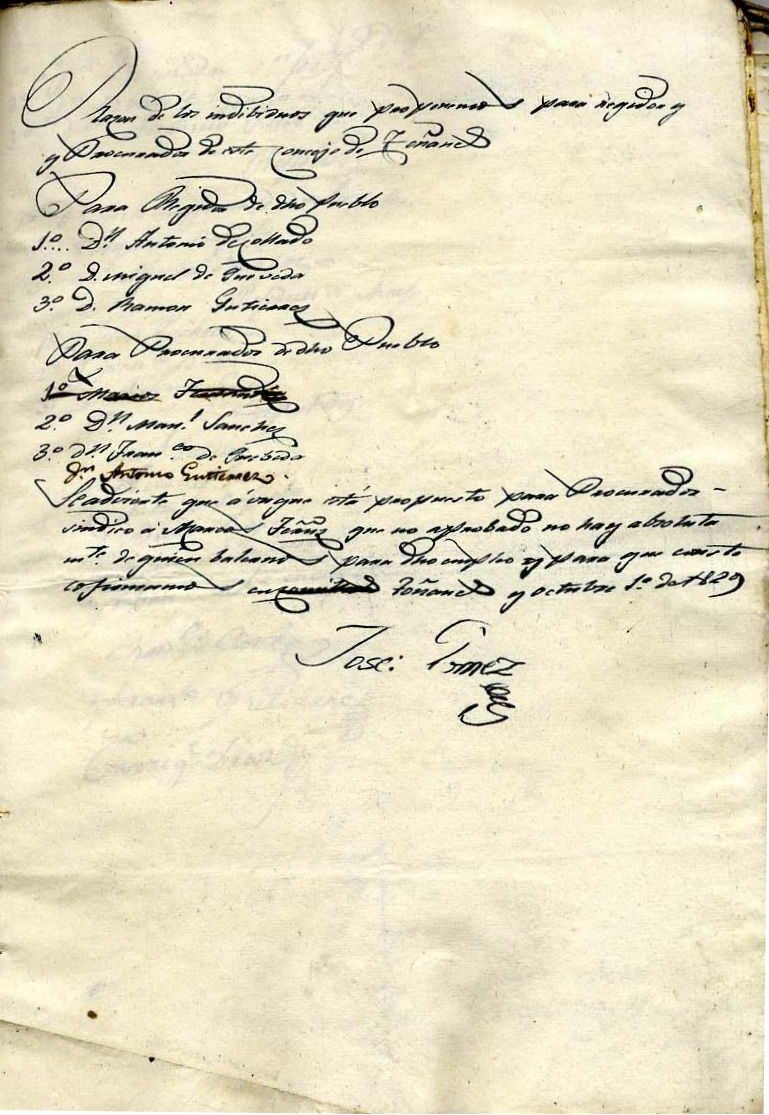 Razon de los indibiduos que proponemos para regidor y
y Procurador de este Concejo de Toñanes
Para Regidor de dho Pueblo
1º.. Dn Antonio de Collado
2.º D. Miguel de Queveda
3º. D. Ramon Gutierrez
Para Procurador de dho Pueblo
1º Marcos Fernandez
2.º Dn Man.l Sanchez
3º. dn Fran.co de Quebeda
dn Antonio Gutierrez.
Se advierte que aunque está propuesto para Procurador
sindico á Marcos que no aprobado no hay absoluta
mte de quien balernos para dho empleo y para que conste
lo firmamos en Toñanes y octubre 1º. de 1829
José: Gomez